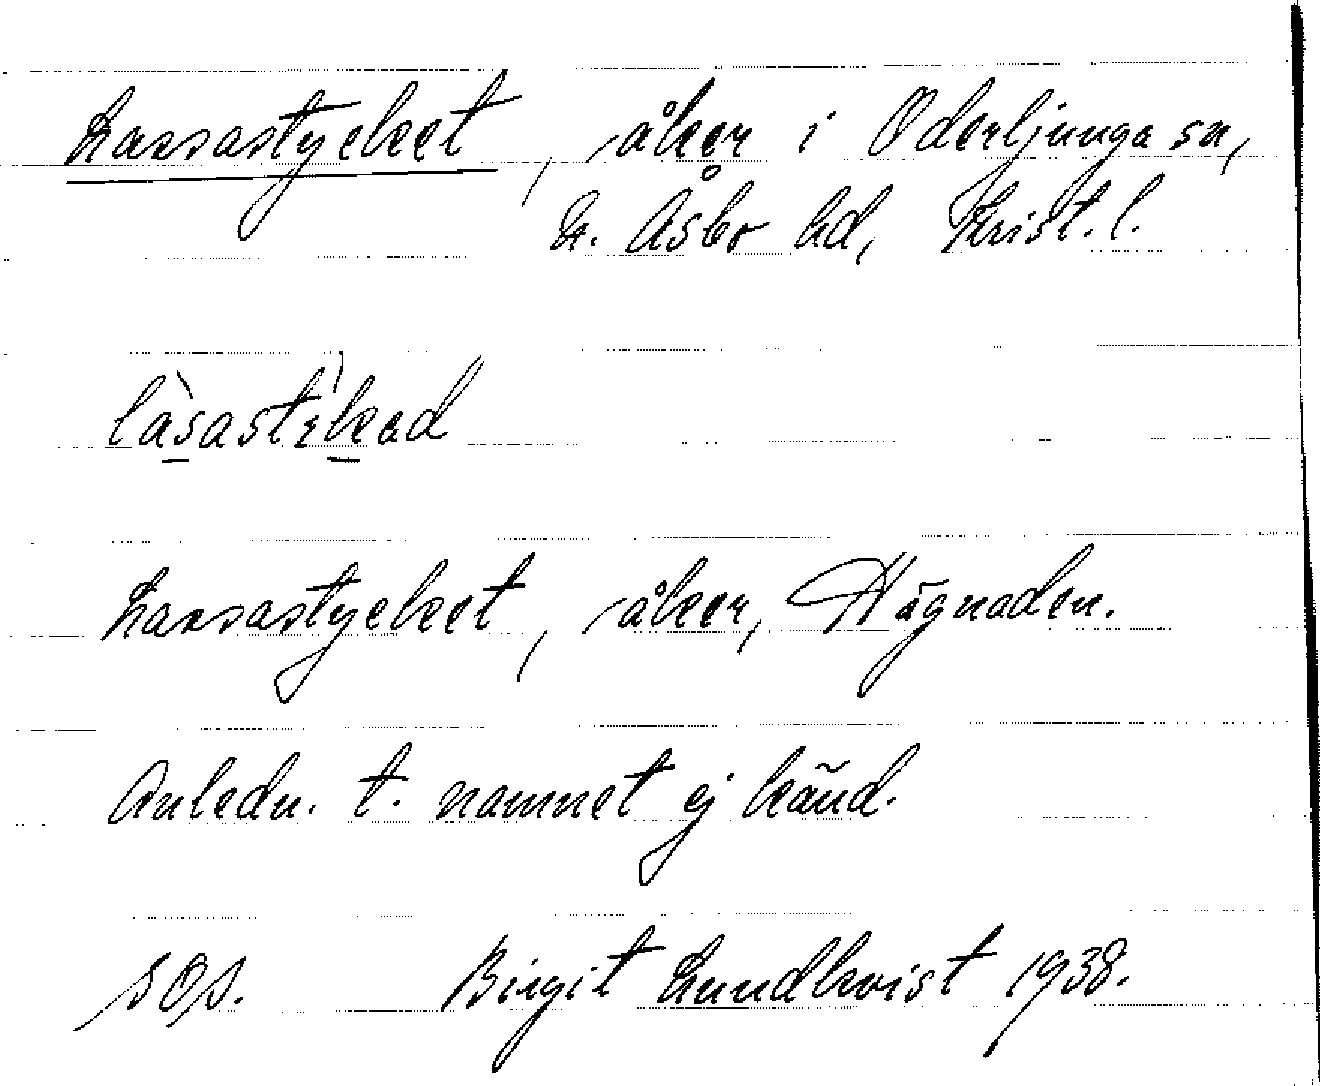 Larsastycket, åker i Oderljunga sn,
N. Åsbo hd, Krist. l.
làsastỳkad
Larsastycket, åker, Hägnaden.
Anledn. t. namnet ej känd.
Birgit Lundkvist 1938.